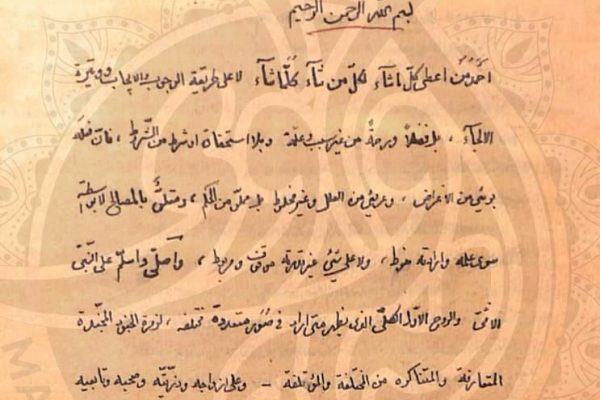 بسم الله الرحمن الرحيم
احمد من اعطى كل ما شآء لكل من شآء كلما شآء لا على طريقة الوجوب والايجاب ووتيرة
الالجآء ، بل فضلاً ورحمةً من غير سبب وعلة وبلا استحقاق او شرط من الشرط ، فان فعله
بريئ من الاغراض ، وعريئ من العلل وغير مخلوط بل مملو من الحكم ، ومتلئ بالمصالح لا بواسطة
سوى علمه وارادته فقط ، ولا على شيئ غير قدرته موقوف ومربوط ، واصلى واسلم على النبى
الامى والروح الاول الكلى الذى يظهر متى اراد فى صور متعددة مختلفه ، لزمرة الجنود المجندة
المتعارفة والمتناكره من المختلفة والمؤتلفة - وعلى ازواجه وذريته وصحبه وتابعيه
MA